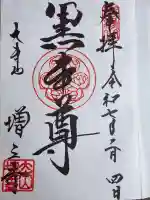 奉拝 令和七年二月四日
黒本尊
大本山
増上寺